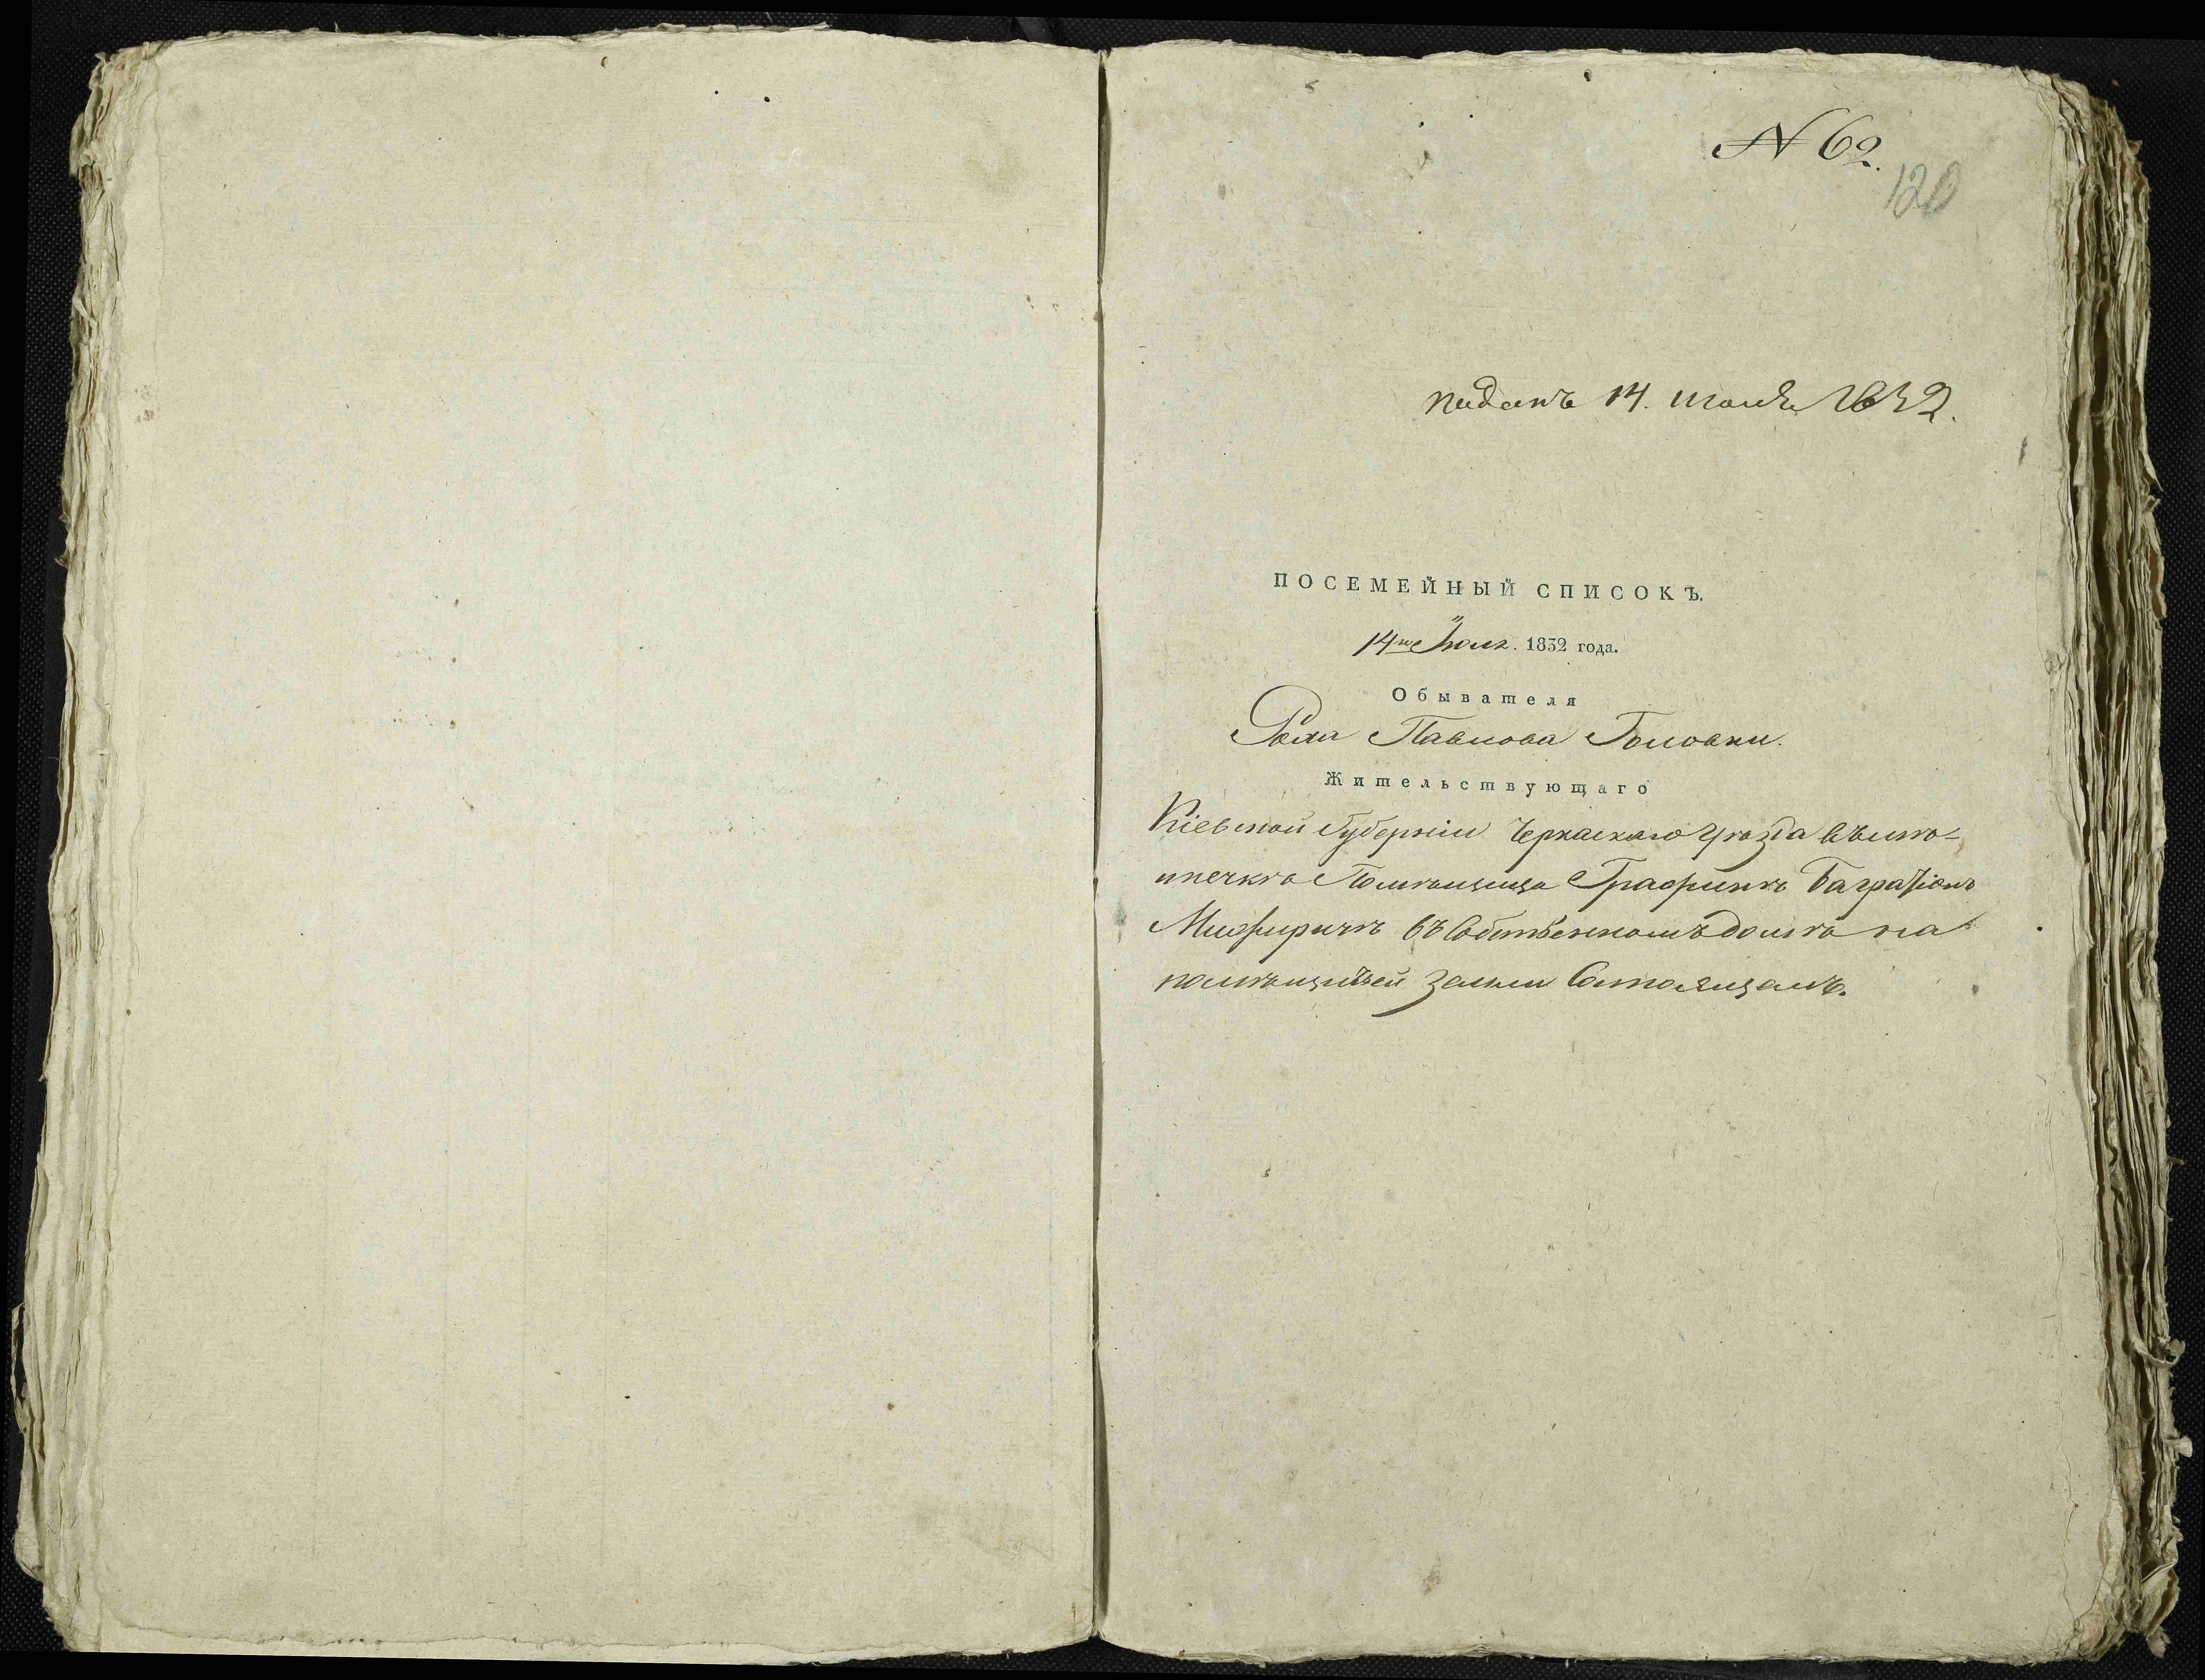 N 62.
120
поданъ 14. июля 1832.
ПОСЕМЕЙНЫЙ СПИСОКЪ.
14го Июля. 1832 года.
Обывателя
Павлова Головки.
Жительствующаго
Кіевской Губерніи Черкаскаго Уѣзда въ мѣ-
стечкѣ Помѣщицы Графинѣ Багратіонъ
Мижиричъ въ Собственномъ домѣ на
помѣщичьей земли Состоящемъ.